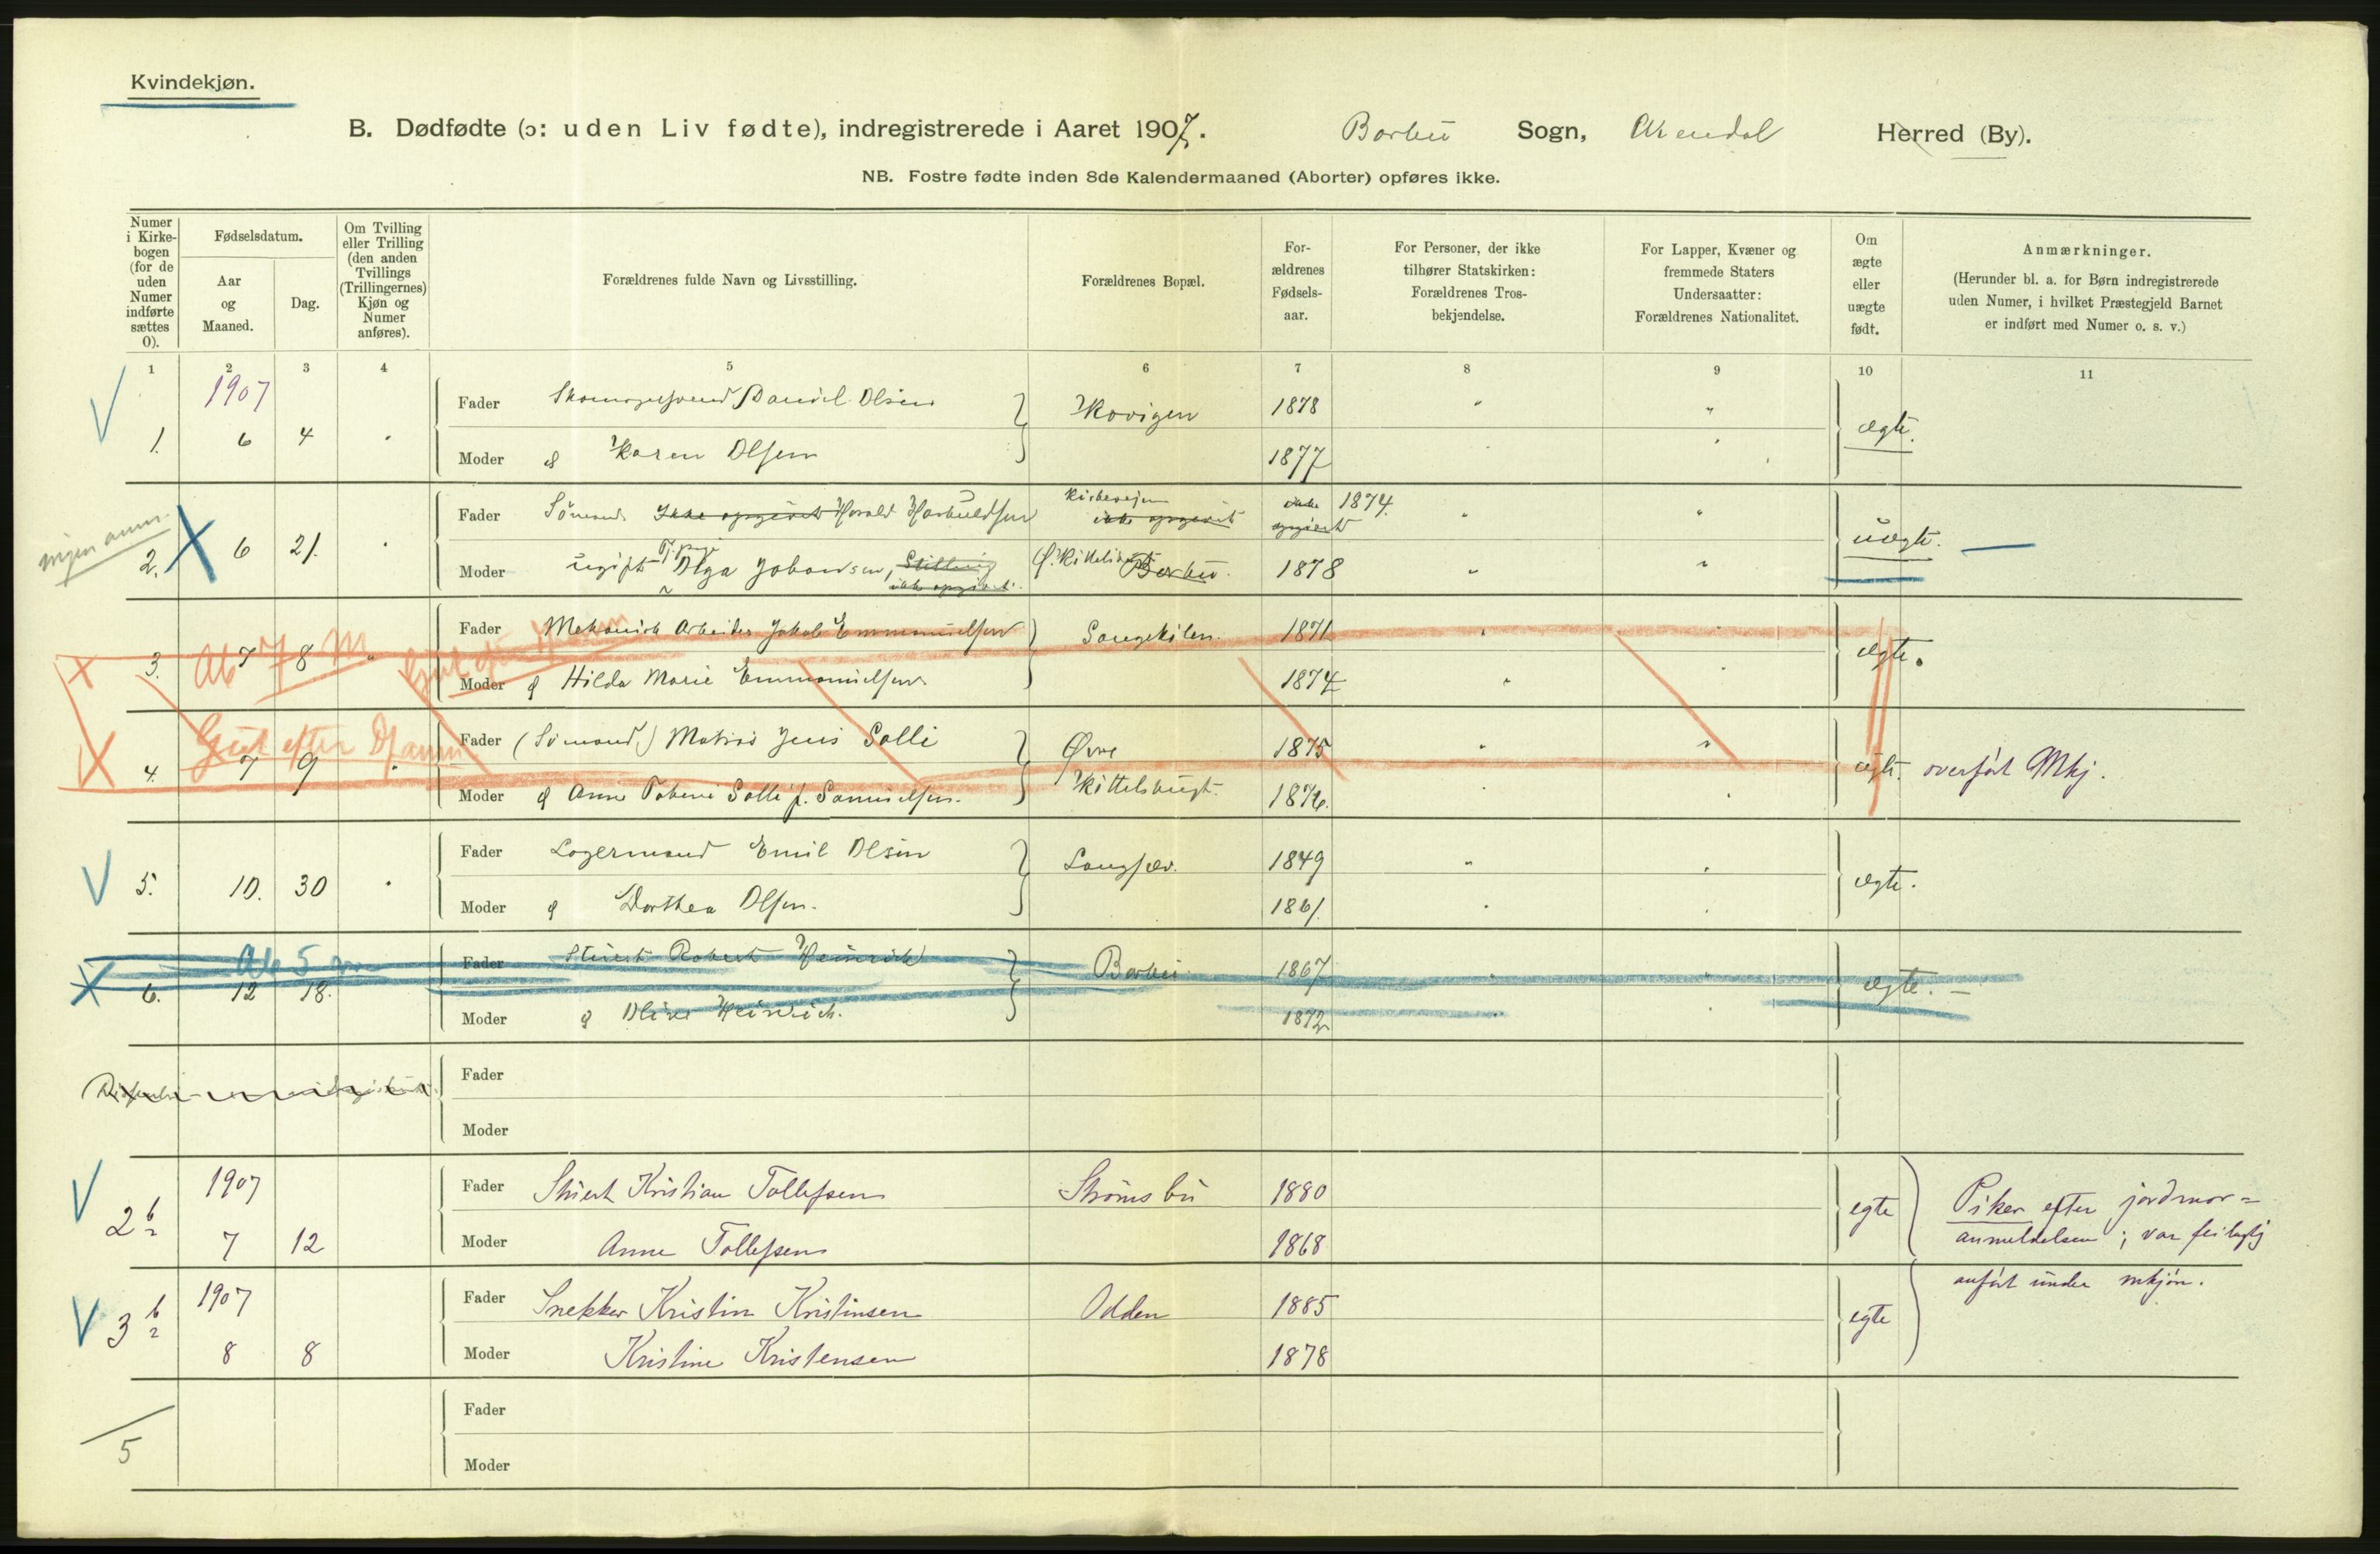 Kvindekjøn.
B. Dødfødte (ɔ: uden Liv fødte), indregistrerede i Aaret 1907. Barbu Sogn, Arendal Herred (By).
NB. Fostre fødte inden 8de Kalendermaaned (Aborter) opføres ikke.
Numer i Kirke-bogen (for de uden Numer indførte sættes 0).
Fødselsdatum.
Aar og Maaned.
Dag.
Om Tvilling eller Trilling (den anden Tvillings (Trillingernes) Kjøn og Numer anføres).
Forældrenes fulde Navn og Livsstilling.
Forældrenes Bopæl.
For-ældrenes Fødsels-aar.
For Personer, der ikke tilhører Statskirken: Forældrenes Tros-bekjendelse.
For Lapper, Kvæner og fremmede Staters Undersaatter: Forældrenes Nationalitet.
Om ægte eller uægte født.
Anmærkninger.
(Herunder bl. a. for Børn indregistrerede uden Numer, i hvilket Præstegjeld Barnet er indført med Numer o. s. v.)
1 2 3 4 5 6 7 8 9 10 11
1907
Fader Daniel Olsen Kovigen 1878 " "
1. 6 4 " ægte.
Moder & Karen Olsen 1877 " "
ingen anm.
Fader Sömand. Ikke opgivet Harald Kirkeveien ikke opgivet ikke opgivet 1874. " "
2. 6 21. " uægte. —
Moder ugift Olga Johansen, Stilling ikke opgivet. Barbu. 1878 " "
Fader Mekanisk Arbeider Jakob Emmanuelsen Songekilen. 1871 " "
3. Ab 7 m 7 8 " ægte.
Moder & Hilda Marie Emmanuelsen 1874 " "
Gut efter Df anm
Fader (Sömand) Matros Jens Solli Øvre 1875 " "
4. 7 9 " ægte. overført Mkj.
Moder & Anne Tobine Solli f. Samuelsen. Kittelsbugt. 1876. " "
Fader Lagermand Emil Olsen Langsæv. 1849 " "
5. 10. 30 " ægte.
Moder & Dorthea Olsen. 1861. " "
Ab 5 m
Fader Stuert Robert Heinrich Barbu 1867 " "
6. 12 18. ægte. —
Moder & Oline Heinrich. 1872 " "
Fader
Moder
1907
Fader Stuert Kristian Tollefsen Strömsbu 1880
2 b/2 egte Piker efter jordmor=
7 12 Moder Anne Tollefsen 1868 anmeldelsen; var feilagtig
1907 anført under mkjøn.
Fader Snekker Kristin Kristinsen Odden 1885
3 b/2 egte
8 8 Moder Kristine Kristensen 1878
Fader
5
Moder